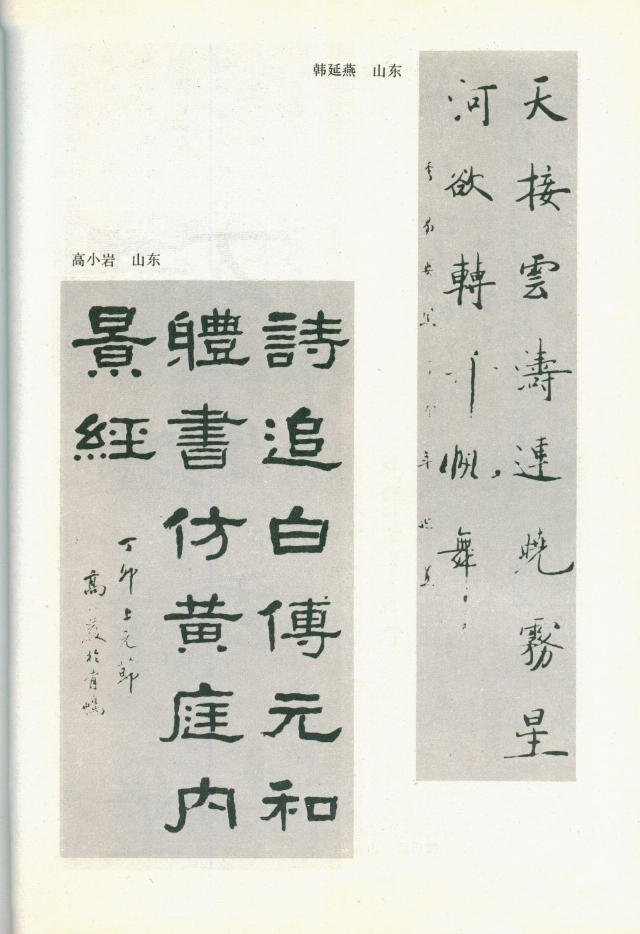 韩延燕 山东
天接雲濤連曉霧星
河欲轉千帆舞
高小岩 山东
詩追白傅元和
體書仿黄庭内
景經
丁卯上元節
高小巖於青島